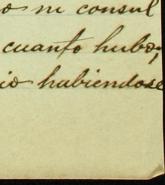 o ni consul
cuanto hubo,
io habiendose